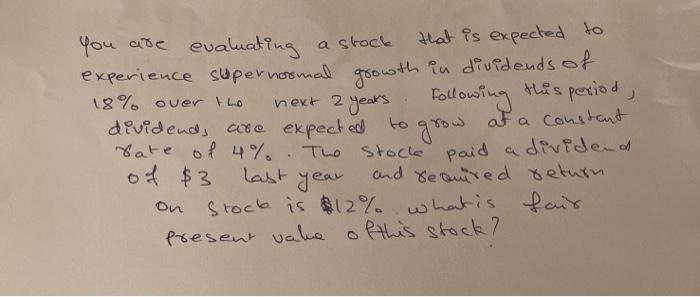 You are evaluating a stock that is expected to
experience supernormal growth in dividends of
18% over the next 2 years. Following this period,
dividends are expected to grow at a constant
rate of 4%. The stock paid a dividend
of $3 last year and required return
on stock is $12%. what is fair
present value of this stock?